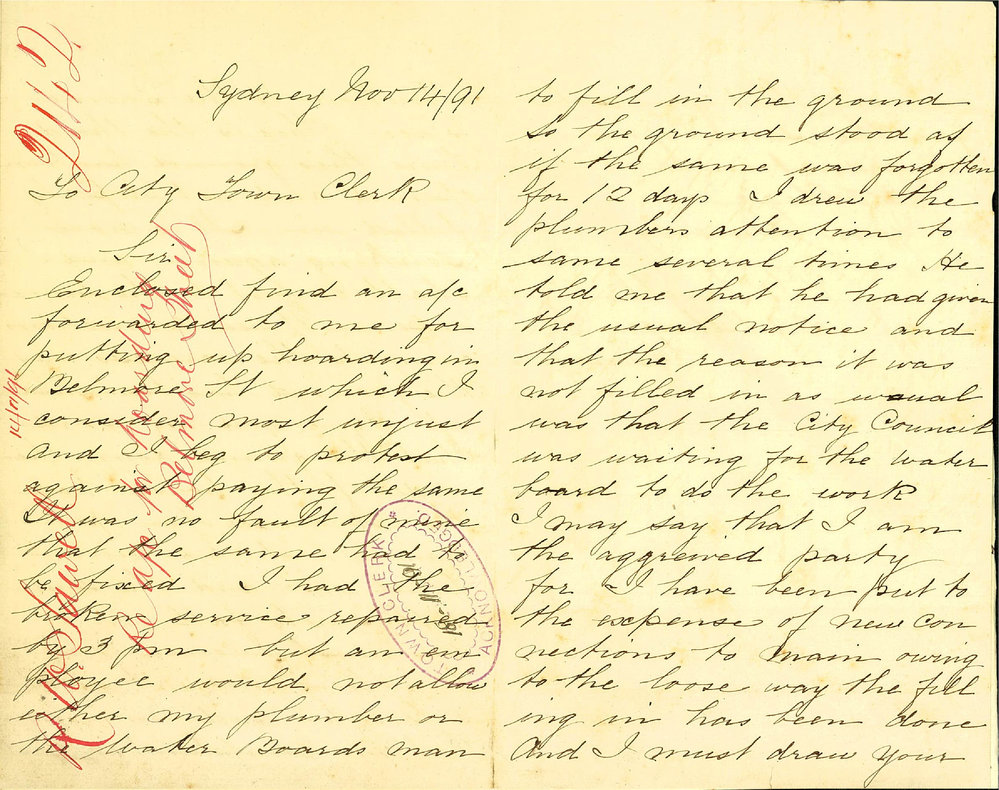 2142
Sydney Nov 14/91
To City Town Clerk
Sir
Enclosed find an a/c
forwarded to me for
putting up hoarding in
Belmore St which I
consider most unjust
and I beg to protest
against paying the same
It was no fault of mine
that the same had to
be fixed I had the
broken service repaired
by 3 pm but an em
ployee would not allow
either my plumber or
the Water Boards man
to fill in the ground
so the ground stood as
if the same was forgotten
for 12 days I drew the
plumbers attention to
same several times He
told me that he had given
the usual notice and
that the reason it was
not filled in as usual
was that the City Council
was waiting for the water
board to do the work
I may say that I am
the aggreived party
for I have been put to
the expense of new con
nections to main owing
to the loose way the fill
ing in has been done
And I must draw your
14/11/91
Re a/c for hoarding
Belmore Street
TOWN CLERK
ACKNOWLEDGED